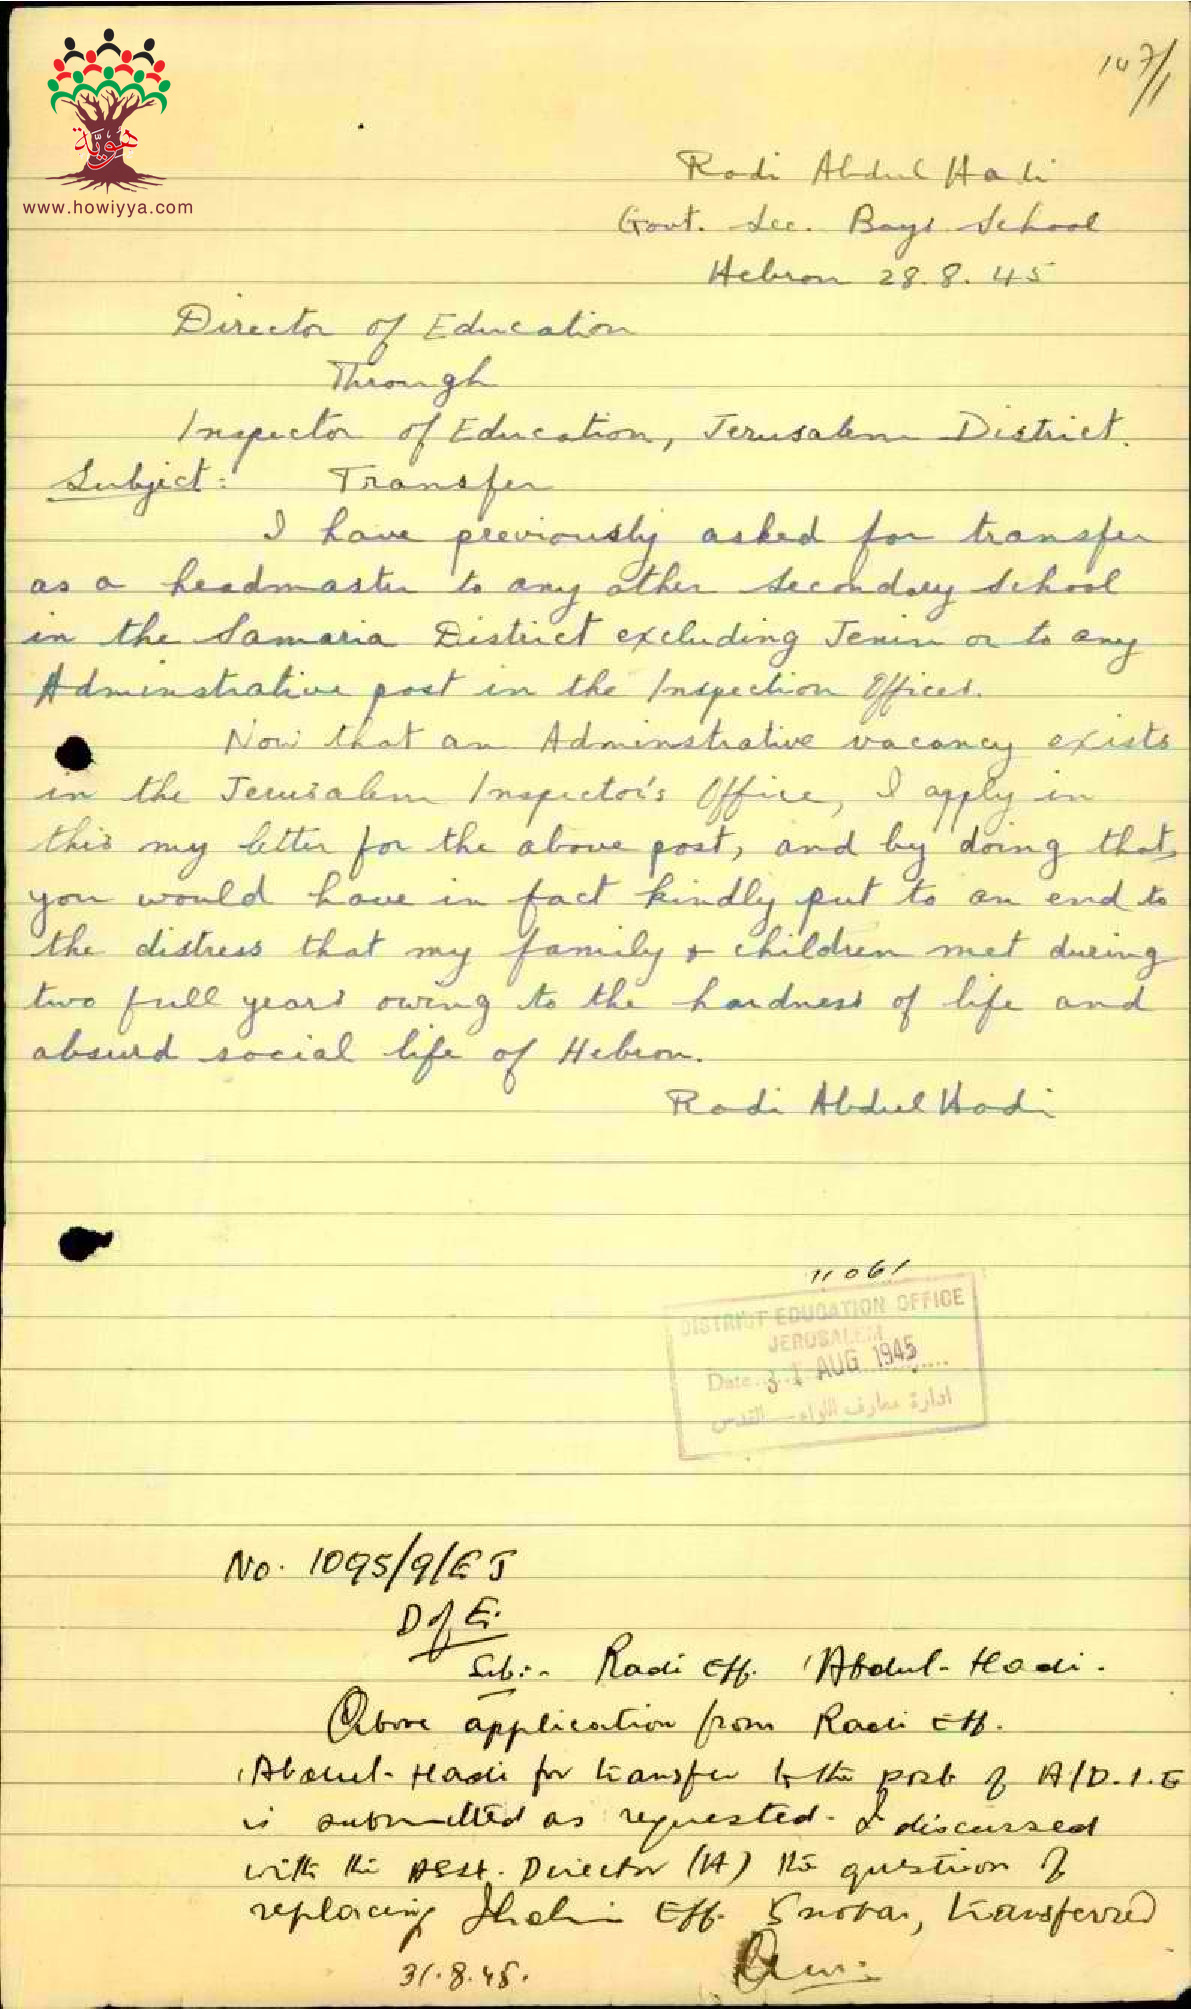 147/1
هوية
www.howiyya.com
Radi Abdul Hadi
Govt. Sec. Boys School
Hebron 28.8.45
Director of Education
Through
Inspector of Education, Jerusalem District.
Subject: Transfer
I have previously asked for transfer
as a headmaster to any other Secondary School
in the Samaria District excluding Jenin or to any
Adminstrative post in the Inspection Offices.
Now that an Adminstrative vacancy exists
in the Jerusalem Inspector's Office, I apply in
this my letter for the above post, and by doing that,
you would have in fact kindly put to an end to
the distress that my family & children met during
two full years owing to the hardness of life and
absurd social life of Hebron.
Radi Abdul Hadi
11061
DISTRICT EDUCATION OFFICE
JERUSALEM
Date 31 AUG 1945
ادارة معارف اللواء — القدس
No. 1095/9/EJ
D of E.
Sub:- Radi Eff. 'Abdul-Hadi.
Above application from Radi Eff.
'Abdul-Hadi for transfer to the post of A/D.I.E
is submitted as requested. I discussed
with the Asst. Director (A) the question of
replacing Eff. Snobar, transferred
31.8.45.